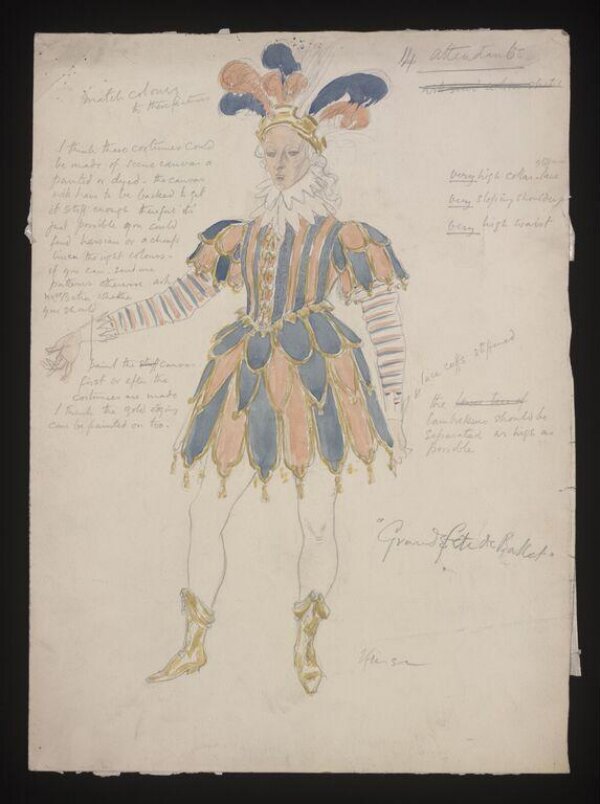 14 attendants
match colours
to the pictures
I think these costumes could
be made of scene canvas &
painted or dyed. the canvas
to be backed to get
it stiff enough
just possible you could
find hessian or a cheap
linen the right colours.
if you can send me
patterns otherwise ask
whether
you should
paint the stuff canvas
first or after the
costumes are made
I think the gold edging
can be painted on too.
very high collar
very sloping shoulders
very high waist
lace cuffs stiffened
the
lambrekins should be
separated as high as
possible
"Grand fete de Ballet"